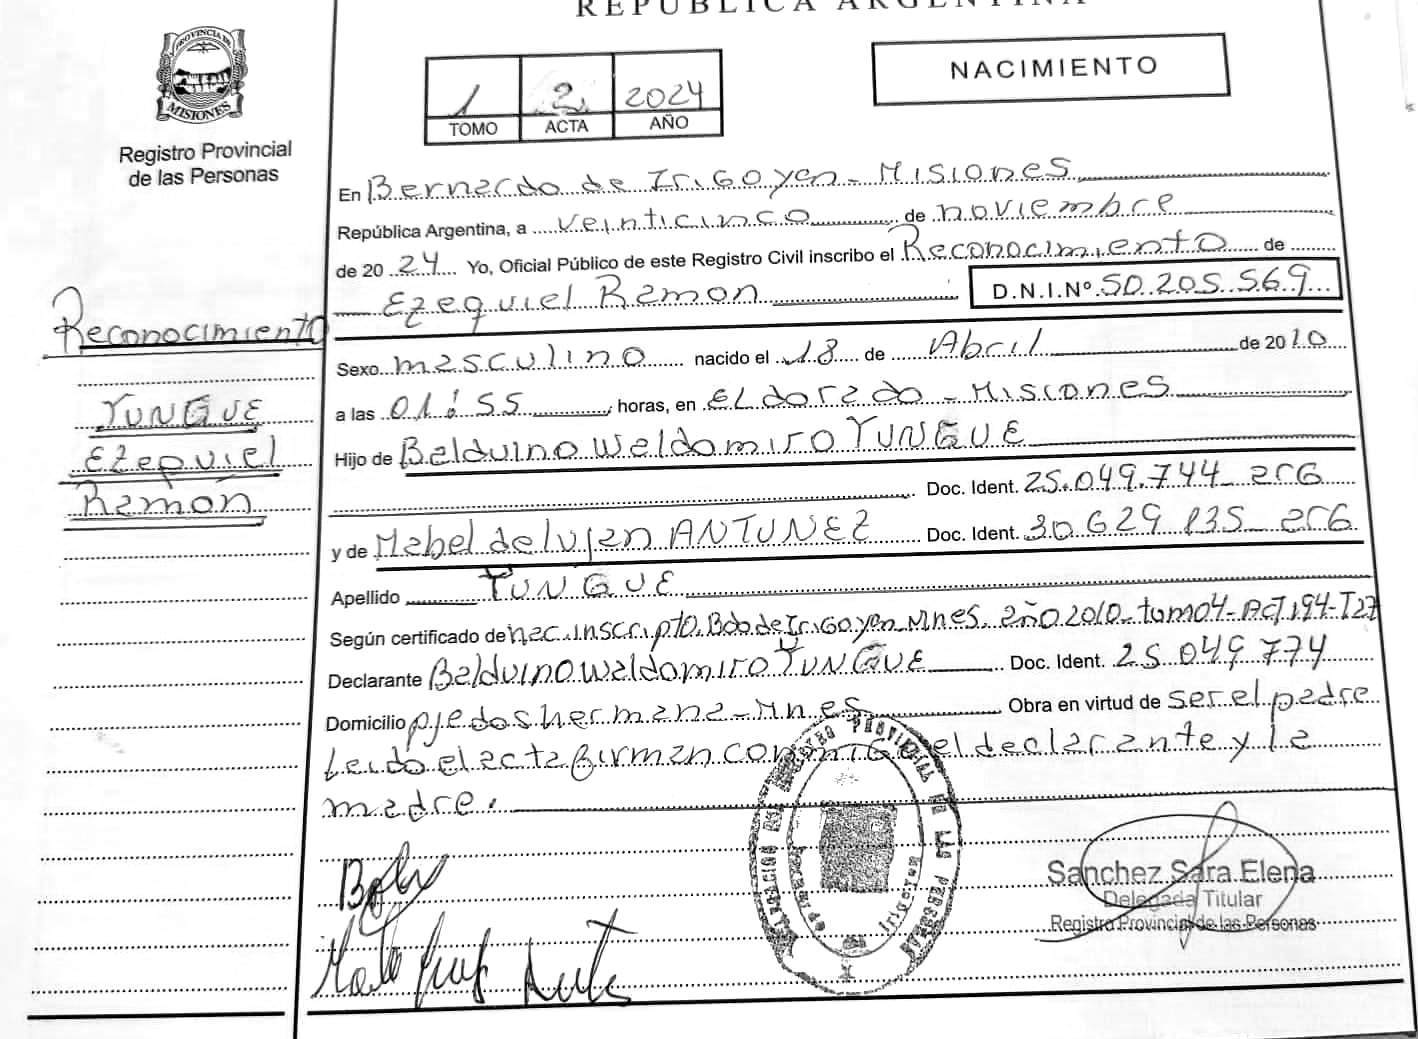 REPÚBLICA ARGENTINA
PROVINCIA DE
MISIONES
Registro Provincial
de las Personas
1 2 2024
TOMO ACTA AÑO
NACIMIENTO
En Bernardo de Irigoyen - Misiones
República Argentina, a veinticinco de noviembre
de 2024 Yo, Oficial Público de este Registro Civil inscribo el Reconocimiento de
Ezequiel Ramon D.N.I.Nº 50.205.569
Sexo masculino nacido el 18 de Abril de 2010
a las 01:55 horas, en Eldorado - Misiones
Hijo de Balduino Waldomiro YUNGUE
Doc. Ident. 25.049.744 arg
y de Mabel de lujan ANTUNEZ Doc. Ident. 30.629.135 arg
Apellido YUNGUE
Según certificado de nac. inscripto. Bdo de Irigoyen Mnes. año 2010 - tomo 4 - ACT 194 - T27
Declarante Balduino Waldomiro YUNGUE Doc. Ident. 25 049 774
Domicilio pje dos hermana - Mnes Obra en virtud de ser el padre
Leido el acta firman conmigo el declarante y la
madre.
Reconocimiento
YUNGUE
Ezequiel
Ramón
Sanchez Sara Elena
Delegada Titular
Registro Provincial de las Personas